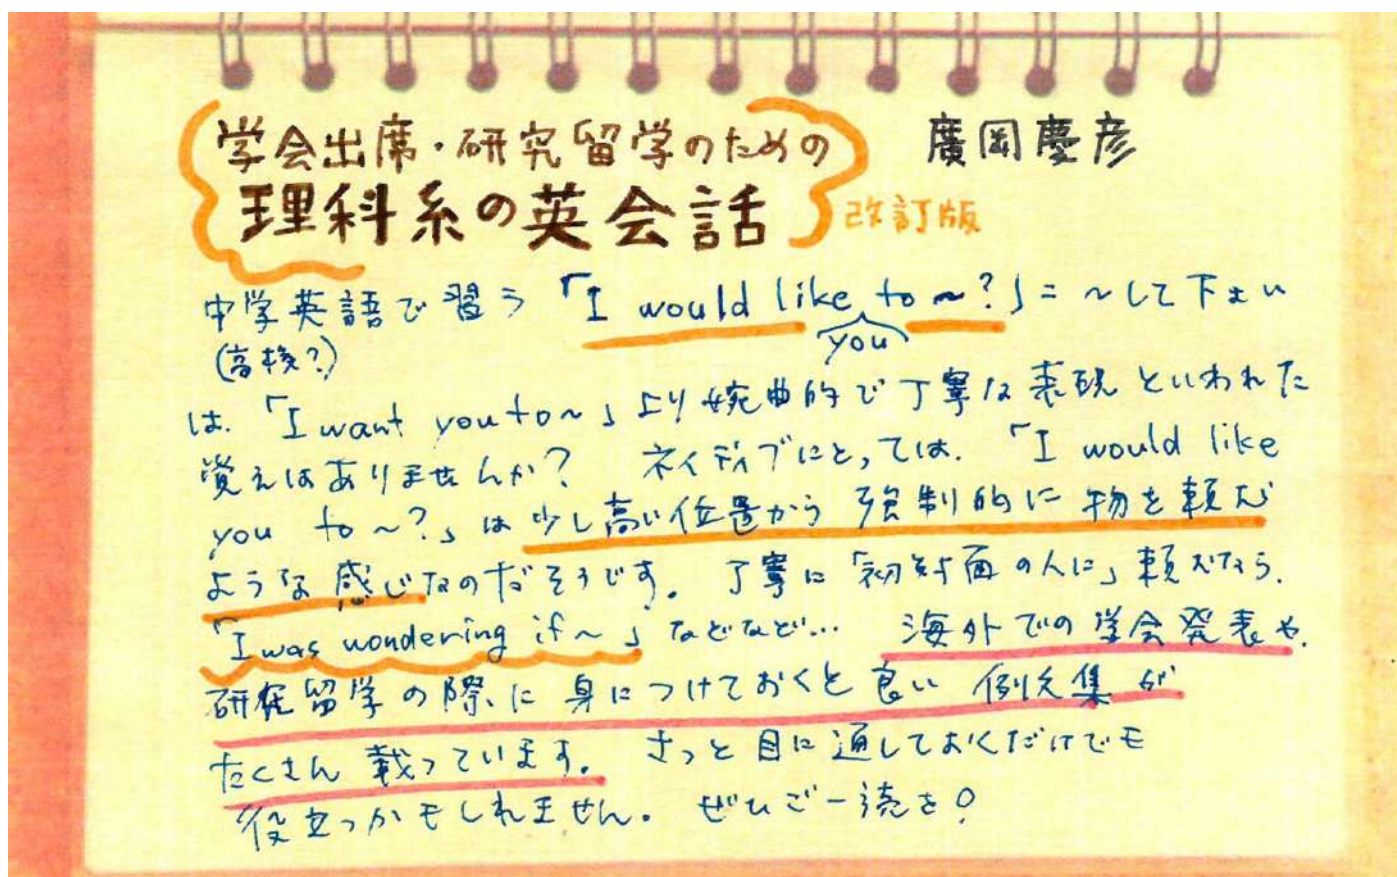 学会出席・研究留学のための 廣岡慶彦
理科系の英会話 改訂版
中学英語で習う「I would like to ~?」= ~して下さい
(高校?) you
は、「I want you to ~」より婉曲的で丁寧な表現といわれた
覚えはありませんか? ネイティブにとっては、「I would like
you to ~?」は少し高い位置から強制的に物を頼む
ような感じなのだそうです。丁寧に「初対面の人に」頼むなら、
「I was wondering if ~」などなど… 海外での学会発表や、
研究留学の際に身につけておくと良い例文集が
たくさん載っています。さっと目に通しておくだけでも
役立つかもしれません。ぜひご一読を!